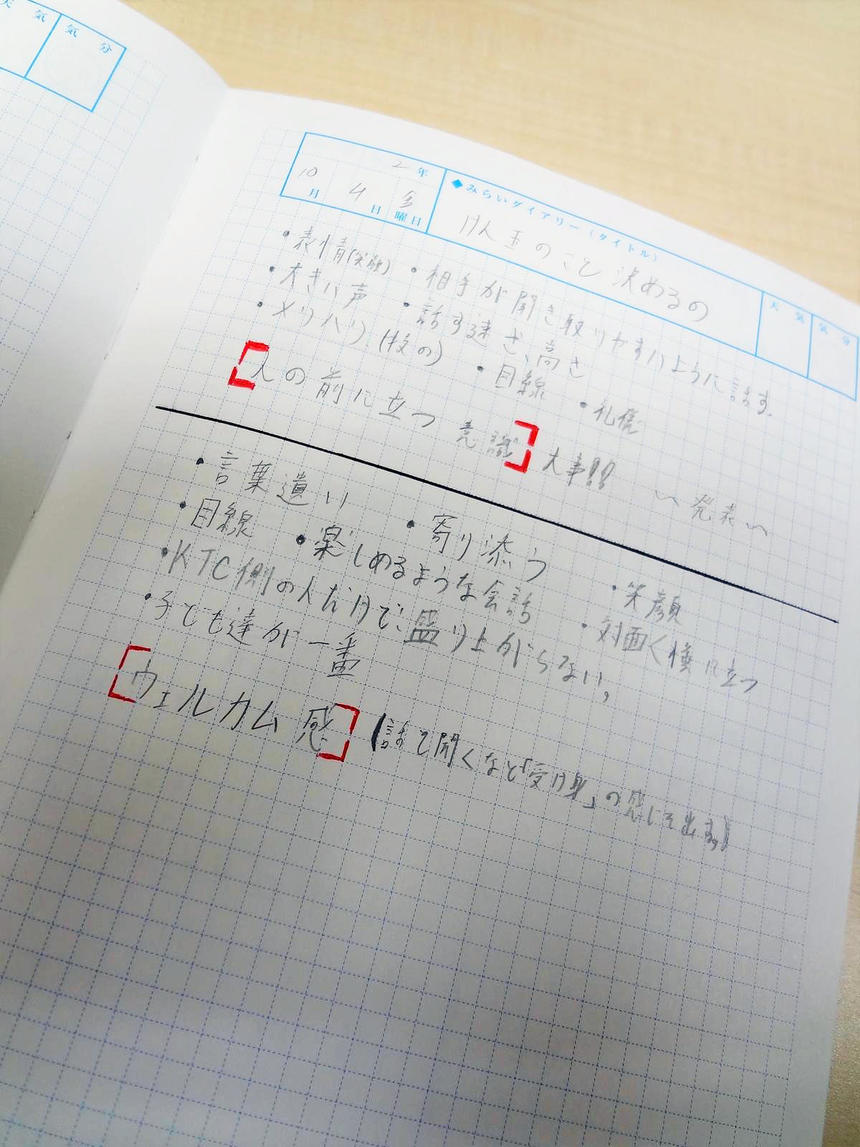 天気 気分
2年 10月 4日 金曜日
◆みらいダイアリー(タイトル)
けん玉のこと決めるの
天気 気分
・表情(笑顔) ・相手が聞き取りやすいように話す。
・大きい声 ・話す速さ、高さ
・メリハリ。(技の) ・目線 ・礼儀
[人の前に立つ意識]大事!!
発表
・言葉遣い ・寄り添う ・笑顔
・目線 ・楽しめるような会話 ・対面く横に立つ
・KTC側の人だけで、盛り上がらない。
・子ども達が一番
[ウェルカム感](話て聞くなど「受け身」の感じを出す。)